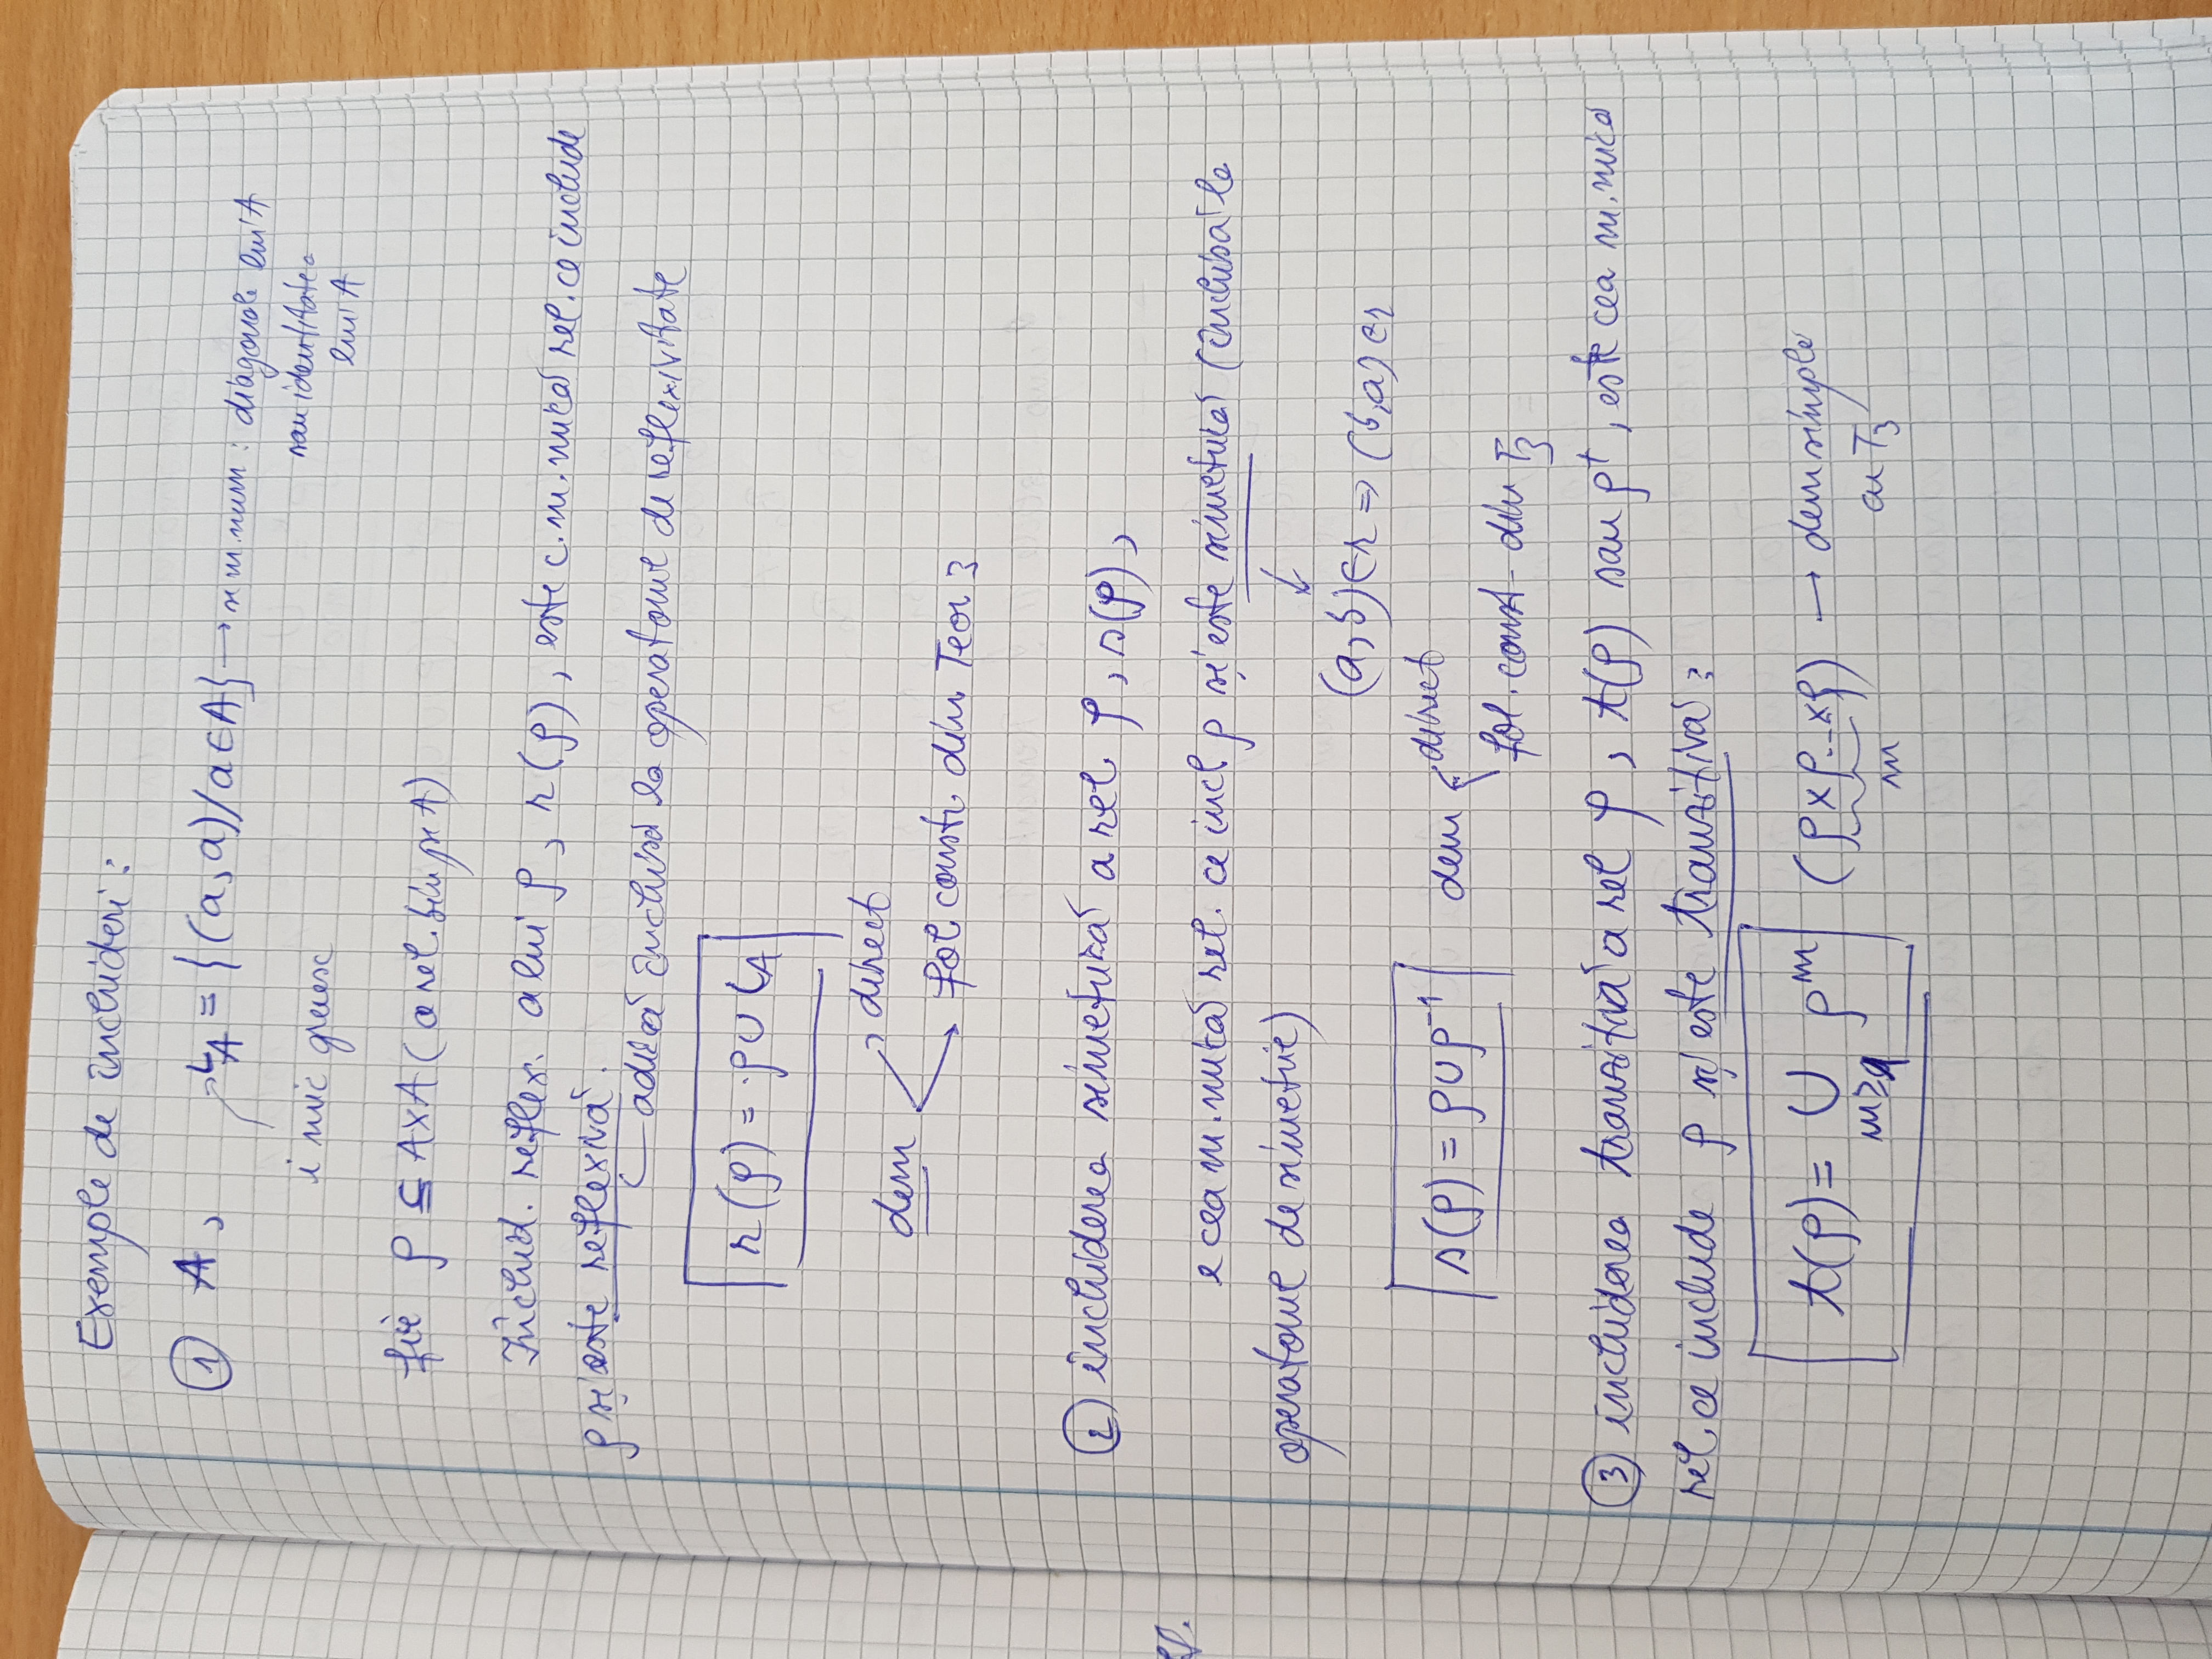 Exemple de închideri:
① A, ι_A = {(a,a)/a∈A} → se m. num: diagonala lui A
sau identitatea
i mic grecesc
lui A
fie ρ ⊆ A×A (o rel. bin pe A)
Închid. reflex. a lui ρ, r(ρ), este c. m. mică rel. ce include
ρ și este reflexivă.
adică închisă la operatorul de reflexivitate
r(ρ) = ρ ∪ ι_A
direct
dem
fol constr. din Teor 3
② închiderea simetrică a rel ρ, s(ρ),
e cea m. mică rel. ce incl ρ și este simetrică (închisă la
operatorul de simetrie)
(a,b)∈r ⇒ (b,a)∈r
s(ρ) = ρ∪ρ⁻¹ dem direct
fol. const din T₃
③ închiderea tranzitivă a rel ρ, t(ρ) sau ρ⁺, este cea m. mică
rel. ce include ρ și este tranzitivă:
t(ρ) = ∪ ρᵐ (ρ×ρ...×ρ) → dem simplă
m≥1 m cu T₃